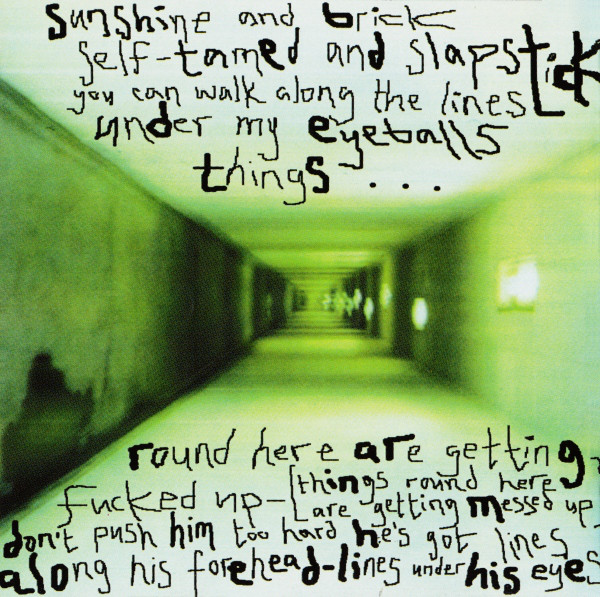 sunshine and brick
self-tamed and slapstick
you can walk along the lines
under my eyeballs
things ...
round here are getting
fucked up-[things round here
are getting messed up
don't push him too hard he's got lines
along his forehead-lines under his eyes